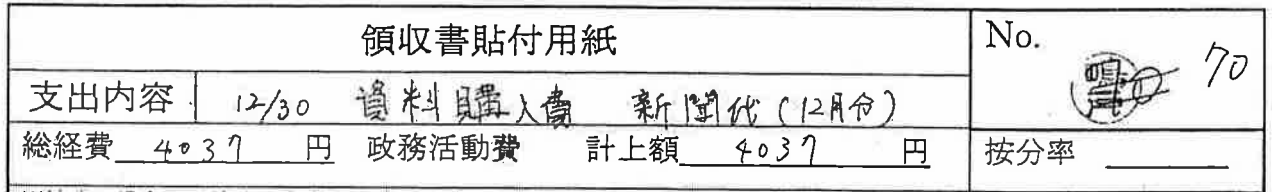 領収書貼付用紙
No. 70
支出内容 12/30 資料購入費 新聞代(12月分)
総経費 4037 円 政務活動費 計上額 4037 円 按分率